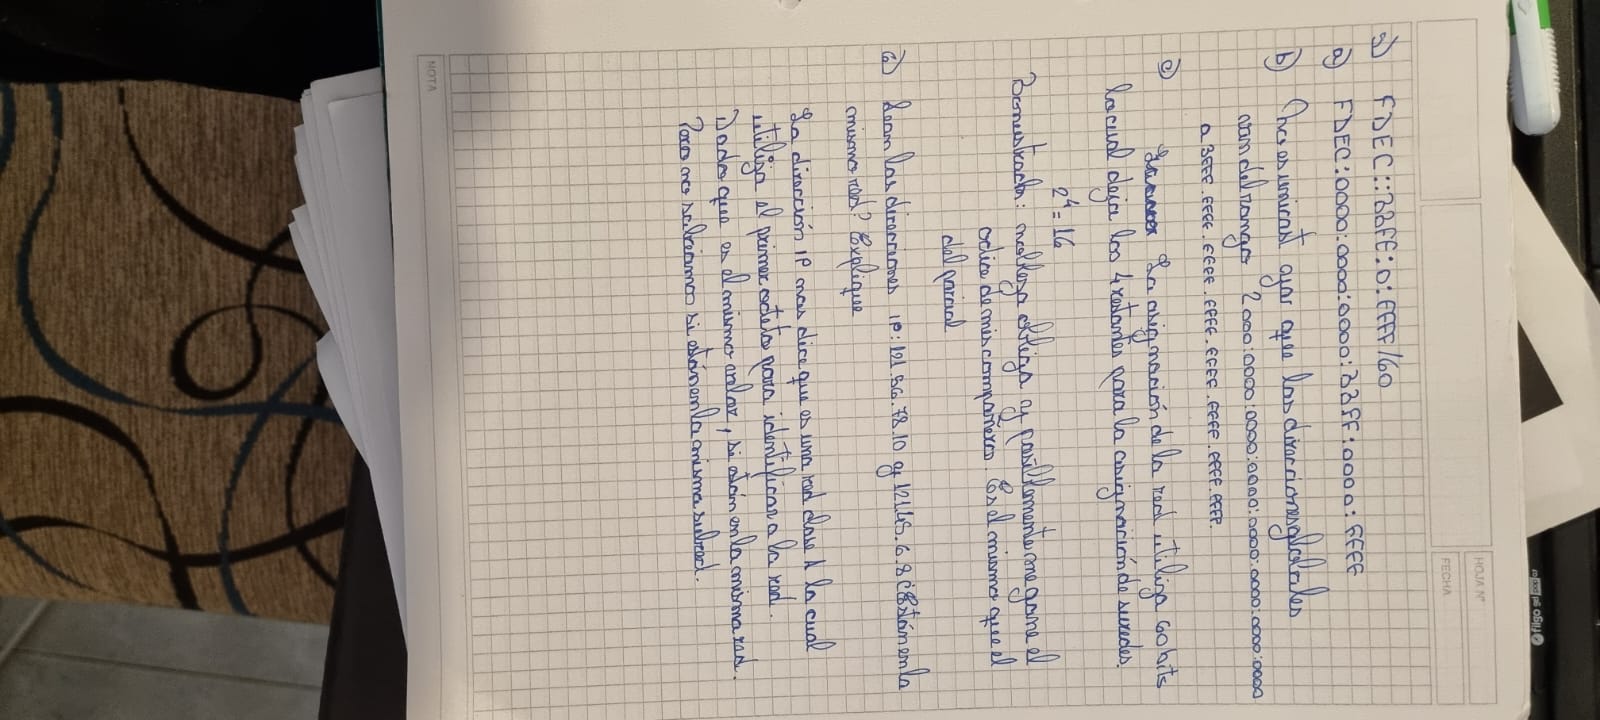 HOJA Nº
FECHA
5) FDEC::BBFF:0:FFFF/60
a) FDEC:0000:0000:0000:BBFF:0000:FFFF
b) es unicast ya que las direcciones globales
van del rango 2000:0000:0000:0000:0000:0000:0000:0000
a 3FFF.FFFF.FFFF.FFFF.FFFF.FFFF.FFFF.FFFF.
c) La asignación de la red utiliza 60 bits
lo cual deja los 4 restantes para la asignación de subredes.
2⁴ = 16
Demostrado: me llega y posiblemente me gane el
odio de mis compañeros. Es el mismo que el
del parcial
6) Sean las direcciones IP: 121.56.78.10 y 121.45.6.8 ¿Están en la
misma red? Explique
La dirección IP nos dice que es una red clase A la cual
utiliza el primer octeto para identificar a la red.
Dado que es el mismo valor, si están en la misma red.
Pero no sabríamos si están en la misma subred.
NOTA
filgo